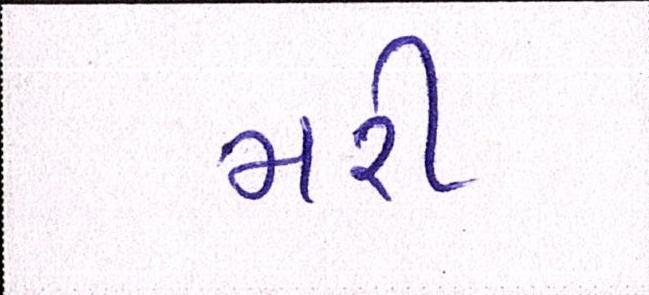 મરી